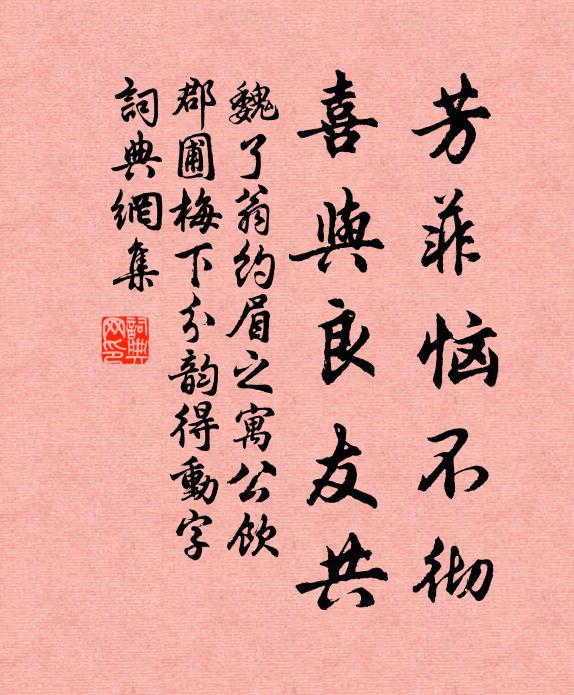 芳菲恼不彻
喜與良友共
魏了翁约眉之寓公飲
郡圃梅下分韵得動字
詞典網集
詞典网印